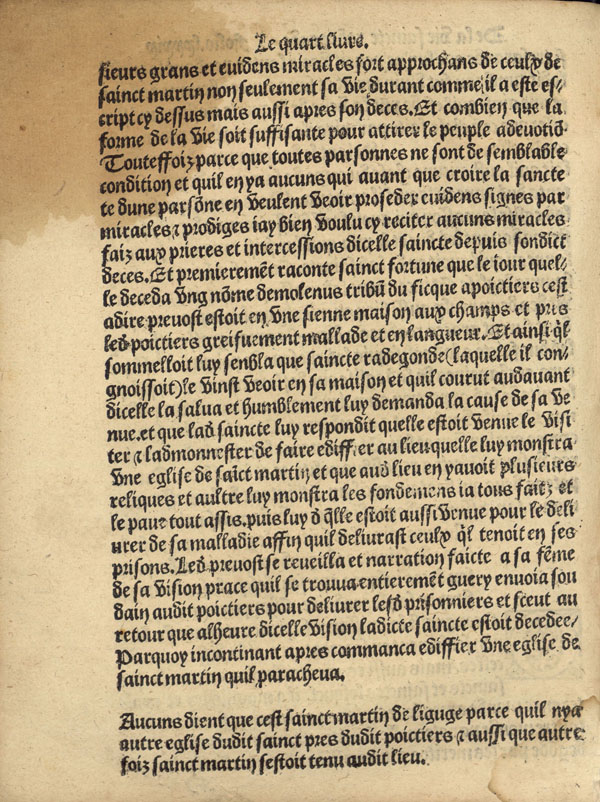 Le quart liure.
sieurs grans et euidens miracles fort approchans de ceulx de
sainct martin non seulement sa vie durant comme il a este es/
cript cy dessus mais aussi apres son deces. Et combien que la
forme de la vie soit suffisante pour attirer le peuple a deuotiō
Touteffoiz parce que toutes parsonnes ne sont de semblable
condition et quil en ya aucuns qui auant que croire la sancte
te dune parsōne en veulent veoir proseder euidens signes par
miracles ⁊ prodiges iay bien voulu cy reciter aucuns miracles
faiz aux prieres et intercessions dicelle saincte depuis sondict
deces. Et premieremēt raconte sainct fortune que le iour quel/
le deceda vng nōme domolenus tribū du ficque a poictiers cest
adire preuost estoit en vne sienne maison aux champs et pres
led̄ poictiers greifuement mallade et en langueur. Et ainsi q̄l
sommelloit luy senbla que saincte radegonde (laquelle il con/
gnoissoit) le vinst veoir en sa maison et quil courut audauant
dicelle la salua et humblement luy demanda la cause de sa ve
nue. et que lad̄ saincte luy respondit quelle estoit venue le visi
ter ⁊ ladmonnester de faire ediffier au lieu quelle luy monstra
vne eglise de saīct martin et que aud̄ lieu en yauoit plusieurs
reliques et aultre luy monstra les fondemens ia tous faitz et
le paue tout assis. puis luy d̄ q̄lle estoit aussi venue pour le deli
urer de sa malladie affin quil deliurast ceulx q̄l tenoit en ses
prisons. Led̄ preuost se reueilla et narration faicte a sa fēme
de sa vision prace quil se trouua entieremēt guery enuoia sou
dain audit poictiers pour deliurer lesd̄ prisonniers et sceut au
retour que alheure dicelle vision ladicte saincte estoit decedee/
Parquoy incontinant apres commanca ediffier vne eglise de
sainct martin quil paracheua.
Aucuns dient que cest sainct martin de liguge parce quil nya
autre eglise dudit sainct pres dudit poictiers ⁊ aussi que autre
foiz sainct martin sestoit tenu audit lieu.